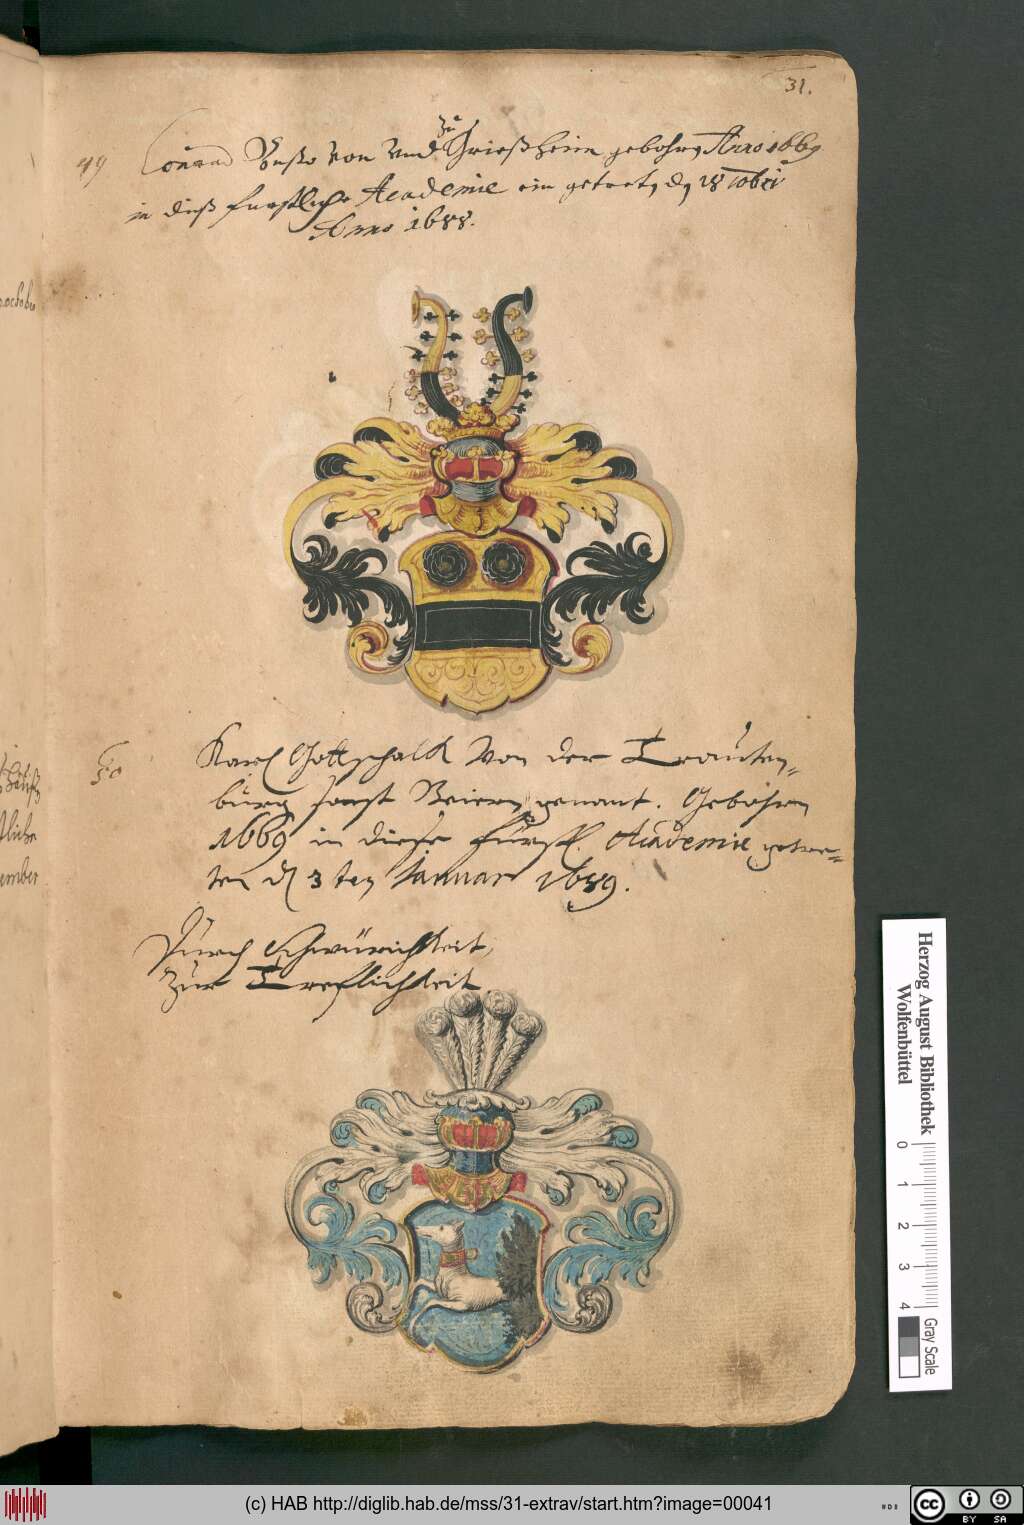 31.
49 Conrad Busso von und zu Grießheim gebohren Anno 1669
in dieß furstliche Academie ein getreten den 28 10bri
Anno 1688.
50 Karl Gottschalck Von der Trauten-
burg sonst Beiern genant. Gebohren
1669 in diese Fürstl. Academie getre-
ten d 3 ten Januar 1689.
Durch Schwürichkeit,
Zur Treflichkeit
ember
Herzog August Bibliothek
Wolfenbüttel
0 1 2 3 4
Gray Scale
(c) HAB http://diglib.hab.de/mss/31-extrav/start.htm?image=00041
cc BY SA